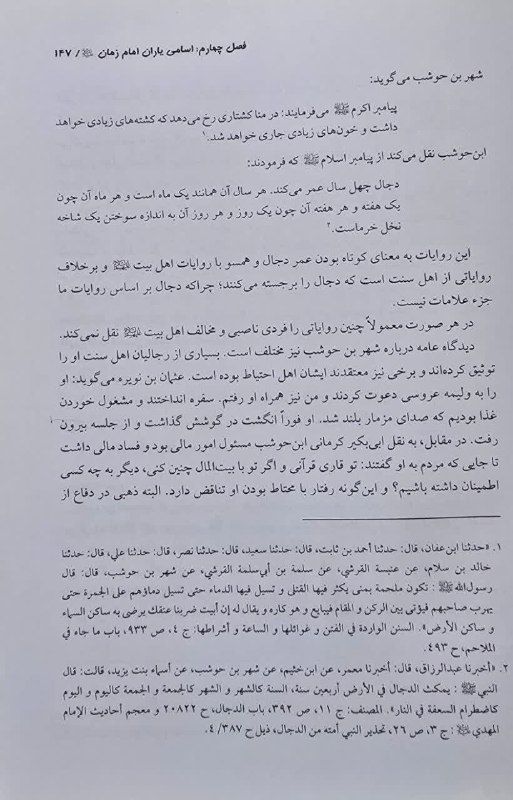 فصل چهارم: اسامی یاران امام زمان ﷺ / ۱۴۷
شهر بن حوشب می‌گوید:
پیامبر اکرم ﷺ می‌فرمایند: در منا کشتاری رخ می‌دهد که کشته‌های زیادی خواهد
داشت و خون‌های زیادی جاری خواهد شد.۱
ابن‌حوشب نقل می‌کند از پیامبر اسلام ﷺ که فرمودند:
دجال چهل سال عمر می‌کند. هر سال آن همانند یک ماه است و هر ماه آن چون
یک هفته و هر هفته آن چون یک روز و هر روز آن به اندازه سوختن یک شاخه
نخل خرماست.۲
این روایات به معنای کوتاه بودن عمر دجال و همسو با روایات اهل بیت ﷺ و برخلاف
روایاتی از اهل سنت است که دجال را برجسته می‌کنند؛ چراکه دجال بر اساس روایات ما
جزء علامات نیست.
در هر صورت معمولاً چنین روایاتی را فردی ناصبی و مخالف اهل بیت ﷺ نقل نمی‌کند.
دیدگاه عامه درباره شهر بن حوشب نیز مختلف است. بسیاری از رجالیان اهل سنت او را
توثیق کرده‌اند و برخی نیز معتقدند ایشان اهل احتیاط بوده است. عثمان بن نویره می‌گوید: او
را به ولیمه عروسی دعوت کردند و من نیز همراه او رفتم. سفره انداختند و مشغول خوردن
غذا بودیم که صدای مزمار بلند شد. او فوراً انگشت در گوشش گذاشت و از جلسه بیرون
رفت. در مقابل، به نقل ابی‌بکیر کرمانی ابن‌حوشب مسئول امور مالی بود و فساد مالی داشت
تا جایی که مردم به او گفتند: تو قاری قرآنی و اگر تو با بیت‌المال چنین کنی، دیگر به چه کسی
اطمینان داشته باشیم؟ و این‌گونه رفتار با محتاط بودن او تناقض دارد. البته ذهبی در دفاع از
۱. «حدثنا ابن‌عفان، قال: حدثنا أحمد بن ثابت، قال: حدثنا سعید، قال: حدثنا نصر، قال: حدثنا علي، قال: حدثنا
خالد بن سلام، عن عنبسة القرشي، عن سلمة بن أبي‌سلمة القرشي، عن شهر بن حوشب، قال: قال
رسول‌الله ﷺ : تکون ملحمة بمنی یکثر فیها القتلی و تسیل فیها الدماء حتی تسیل دماؤهم علی الجمرة حتی
یهرب صاحبهم فیؤتی بین الرکن و المقام فیبایع و هو کاره و یقال له إن أبیت ضربنا عنقك یرضی به ساکن السماء
و ساکن الأرض». السنن الواردة في الفتن و غوائلها و الساعة و أشراطها: ج ۴، ص ۹۳۳، باب ما جاء في
الملاحم، ح ۴۹۳.
۲. «أخبرنا عبدالرزاق، قال: أخبرنا معمر، عن ابن‌خثیم، عن شهر بن حوشب، عن أسماء بنت یزید، قالت: قال
النبي ﷺ : یمکث الدجال في الأرض أربعین سنة، السنة کالشهر و الشهر کالجمعة و الجمعة کالیوم و الیوم
کاضطرام السعفة في النار». المصنف: ج ۱۱، ص ۳۹۲، باب الدجال، ح ۲۰۸۲۲ و معجم أحادیث الإمام
المهدي ﷺ : ج ۳، ص ۲۶، تحذیر النبي أمته من الدجال، ذیل ح ۴/۳۸۷.